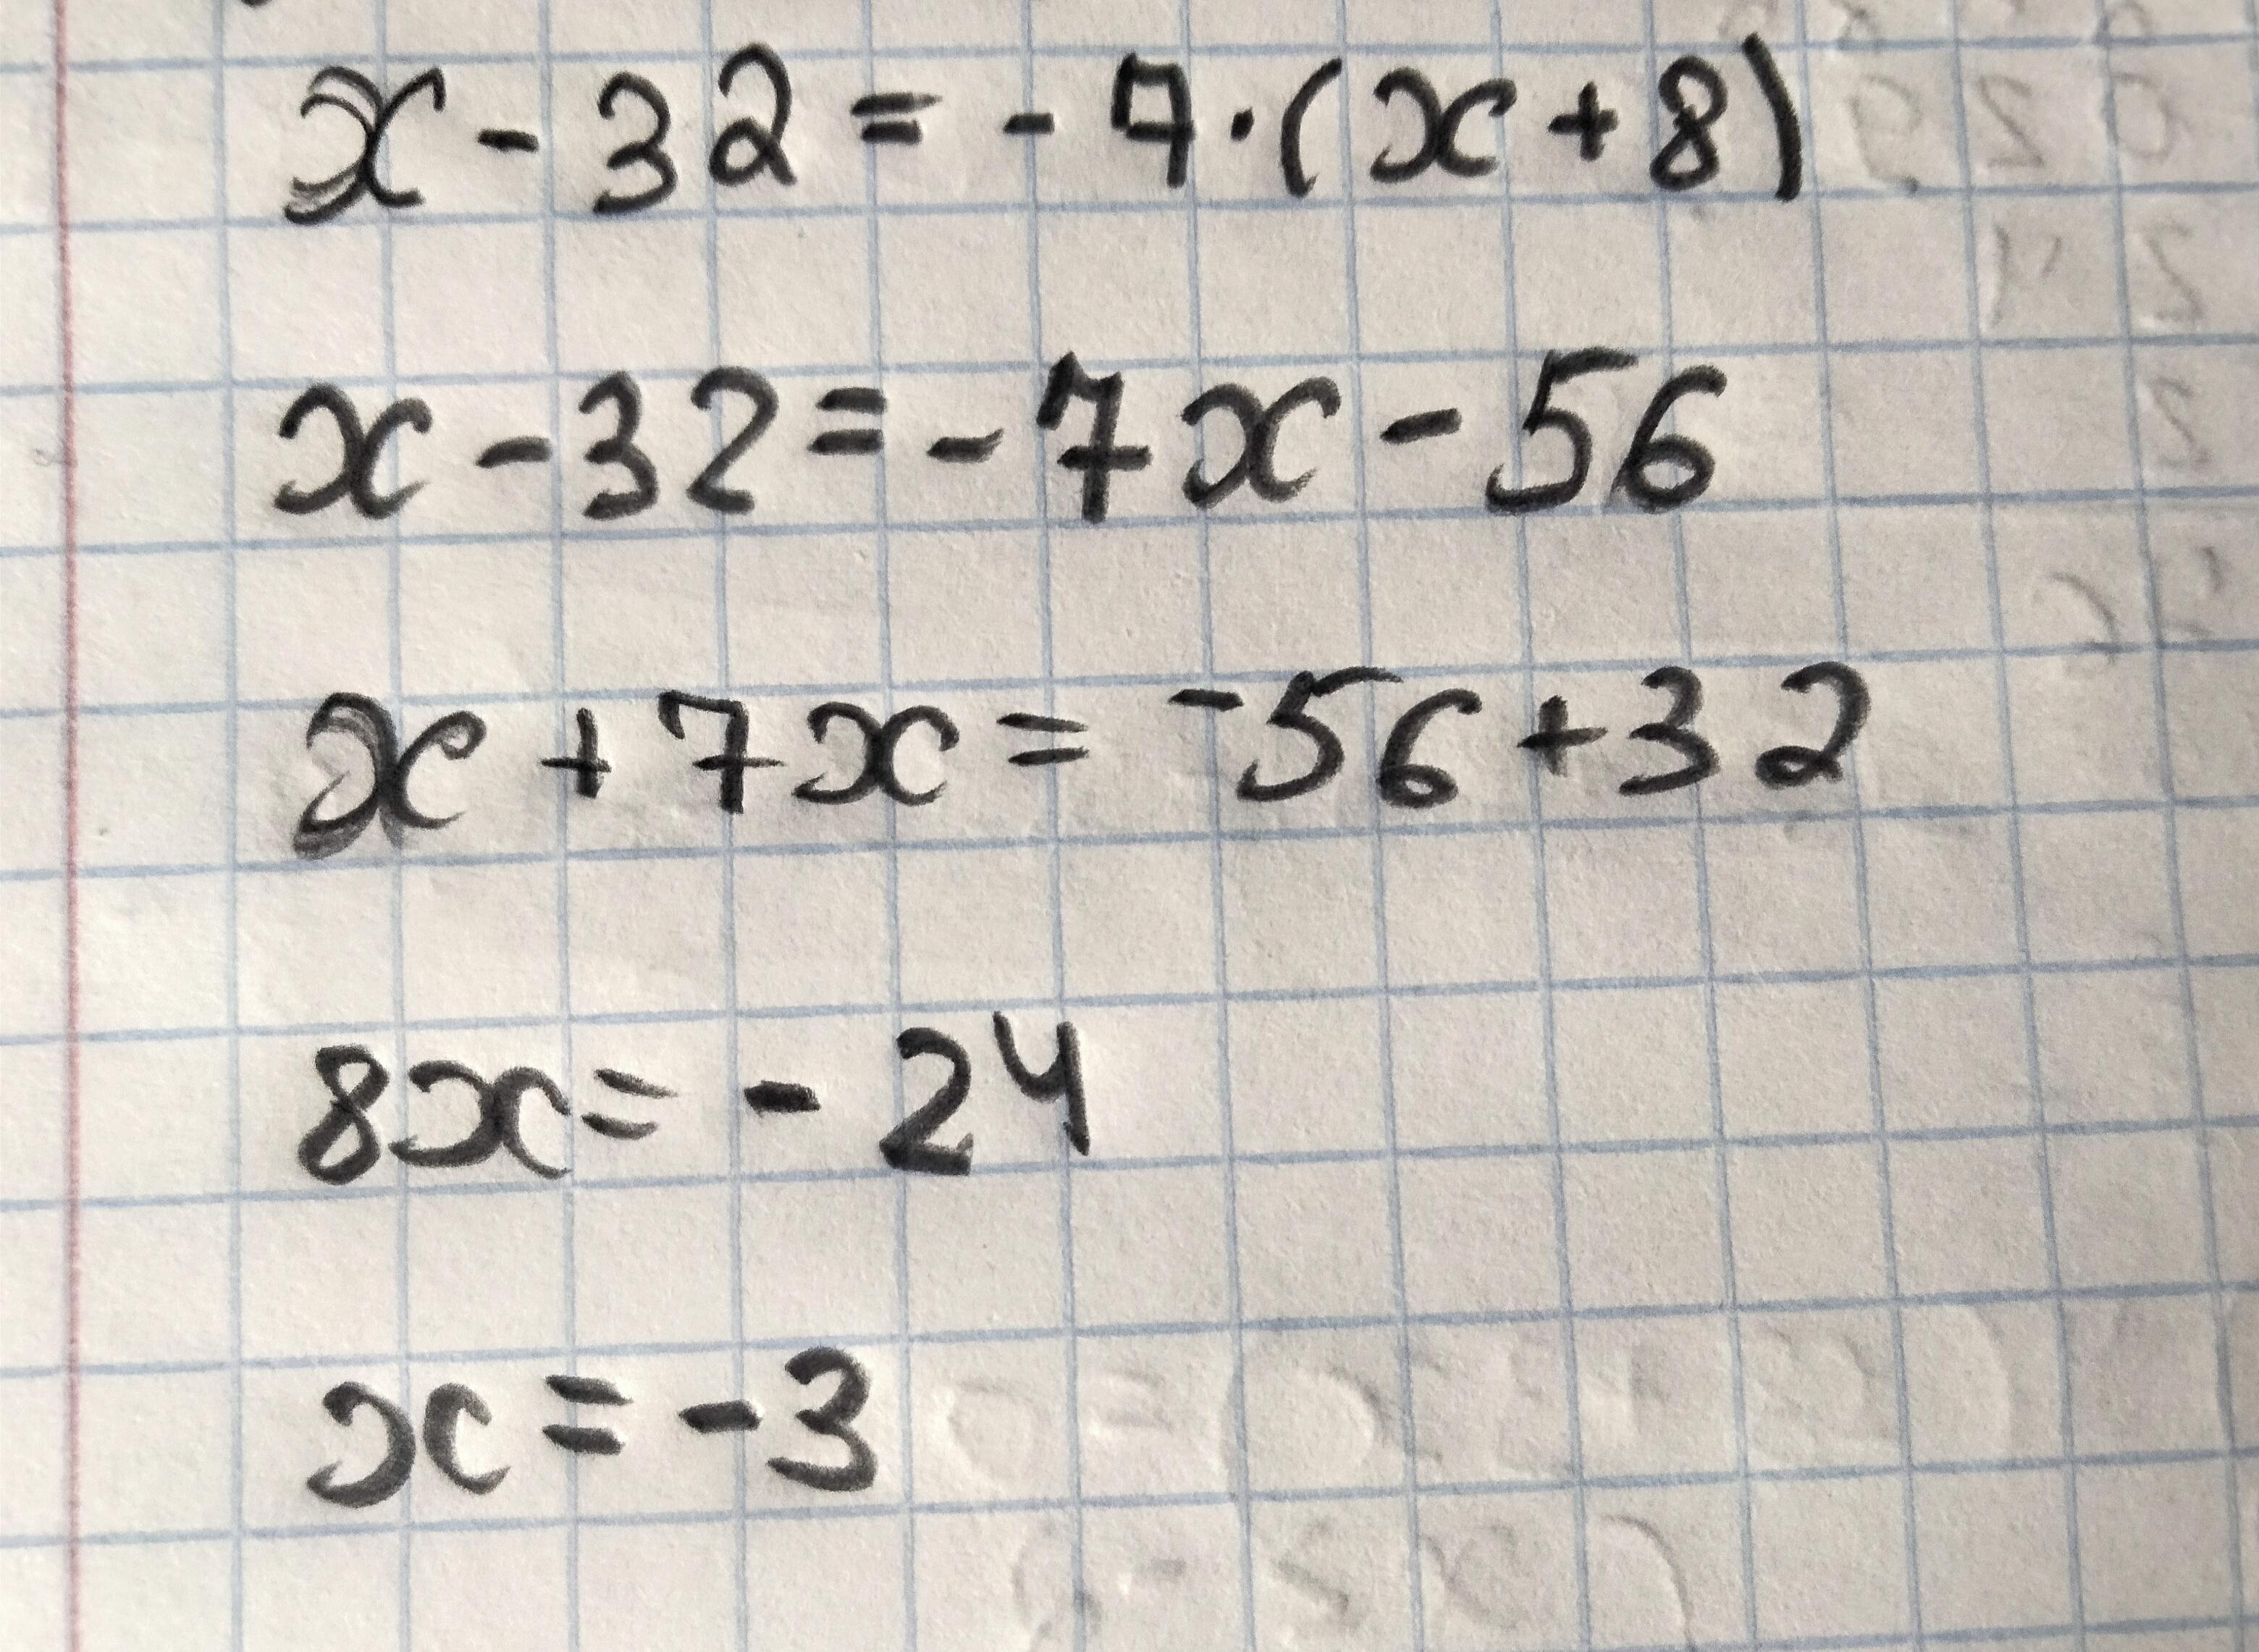 x - 32 = - 7 · (x + 8)
x - 32 = - 7x - 56
x + 7x = -56 + 32
8x = - 24
x = -3